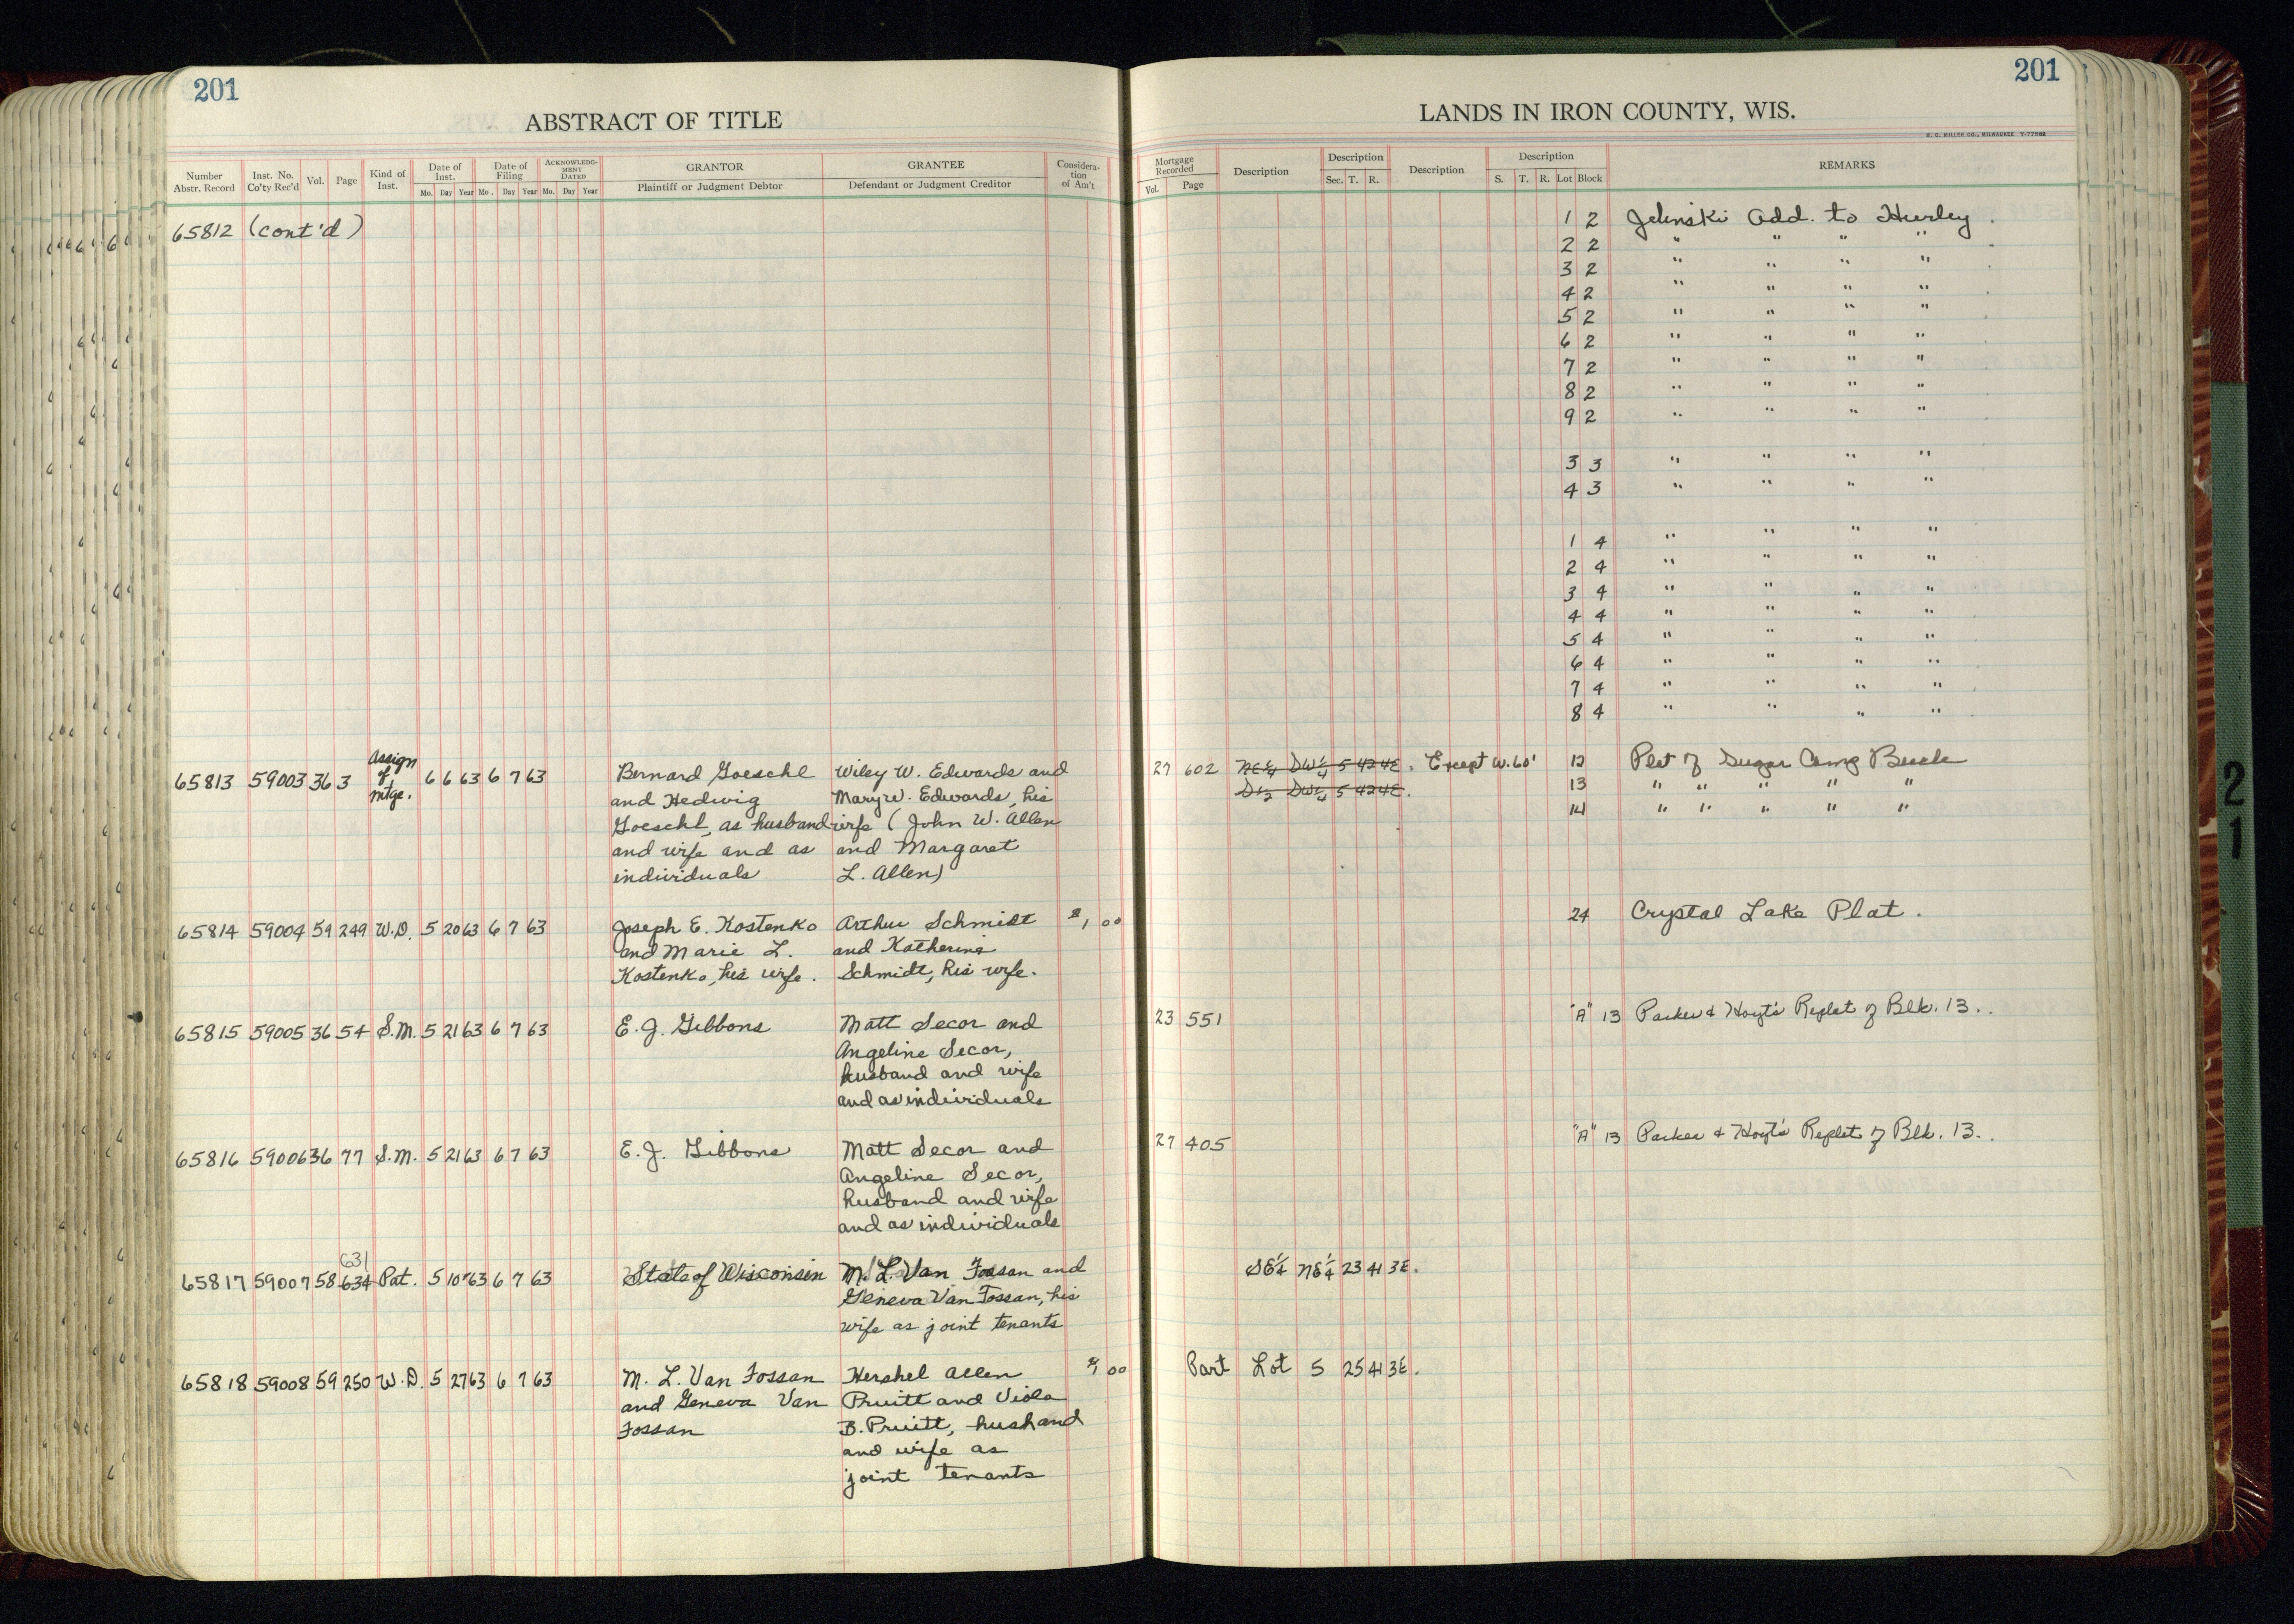 201
ABSTRACT OF TITLE
Number Abstr. Record
Inst. No. Co'ty Rec'd
Vol.
Page
Kind of Inst.
Date of Inst.
Mo. Day Year
Date of Filing
Mo. Day Year
ACKNOWLEDGMENT DATED
Mo. Day Year
GRANTOR
Plaintiff or Judgment Debtor
GRANTEE
Defendant or Judgment Creditor
Consideration of Am't
65812 (cont'd)
65813 59003 36 3 Assign of Mtge. 6 6 63 6 7 63 Bernard Goeschl Wiley W. Edwards and
and Hedwig Mary W. Edwards, his
Goeschl, as husband wife (John W. Allen
and wife and as and Margaret
individuals L. Allen)
65814 59004 59 249 W.D. 5 20 63 6 7 63 Joseph E. Kostenko Arthur Schmidt $1,00
and Marie L. and Katherine
Kostenko, his wife. Schmidt, his wife.
65815 59005 36 54 S.M. 5 21 63 6 7 63 E. J. Gibbons Matt Secor and
Angeline Secor,
husband and wife
and as individuals
65816 59006 36 77 S.M. 5 21 63 6 7 63 E. J. Gibbons Matt Secor and
Angeline Secor,
husband and wife
and as individuals
631
65817 59007 58 634 Pat. 5 10 63 6 7 63 State of Wisconsin M. L. Van Fossan and
Geneva Van Fossan, his
wife as joint tenants
65818 59008 59 250 W.D. 5 27 63 6 7 63 M. L. Van Fossan Hershel Allen $1,00
and Geneva Van Pruitt and Viola
Fossan B. Pruitt, husband
and wife as
joint tenants
201
LANDS IN IRON COUNTY, WIS.
H. C. MILLER CO., MILWAUKEE Y-77086
Mortgage Recorded
Vol. Page
Description
Description
Sec. T. R.
Description
Description
S. T. R. Lot Block
REMARKS
1 2 Jelinski Add. to Hurley.
2 2 " " " "
3 2 " " " "
4 2 " " " "
5 2 " " " "
6 2 " " " "
7 2 " " " "
8 2 " " " "
9 2 " " " "
3 3 " " " "
4 3 " " " "
1 4 " " " "
2 4 " " " "
3 4 " " " "
4 4 " " " "
5 4 " " " "
6 4 " " " "
7 4 " " " "
8 4 " " " "
27 602 NE¼ SW¼ 5 42 4E. Except W. 60' 12 Plat of Sugar Camp Beach
S½ SW¼ 5 42 4E. 13 " " " " "
14 " " " " "
24 Crystal Lake Plat.
23 551 "A" 13 Parker & Hoyt's Replat of Blk. 13..
27 405 "A" 13 Parker & Hoyt's Replat of Blk. 13..
SE¼ NE¼ 23 41 3E.
Part Lot 5 25 41 3E.
21